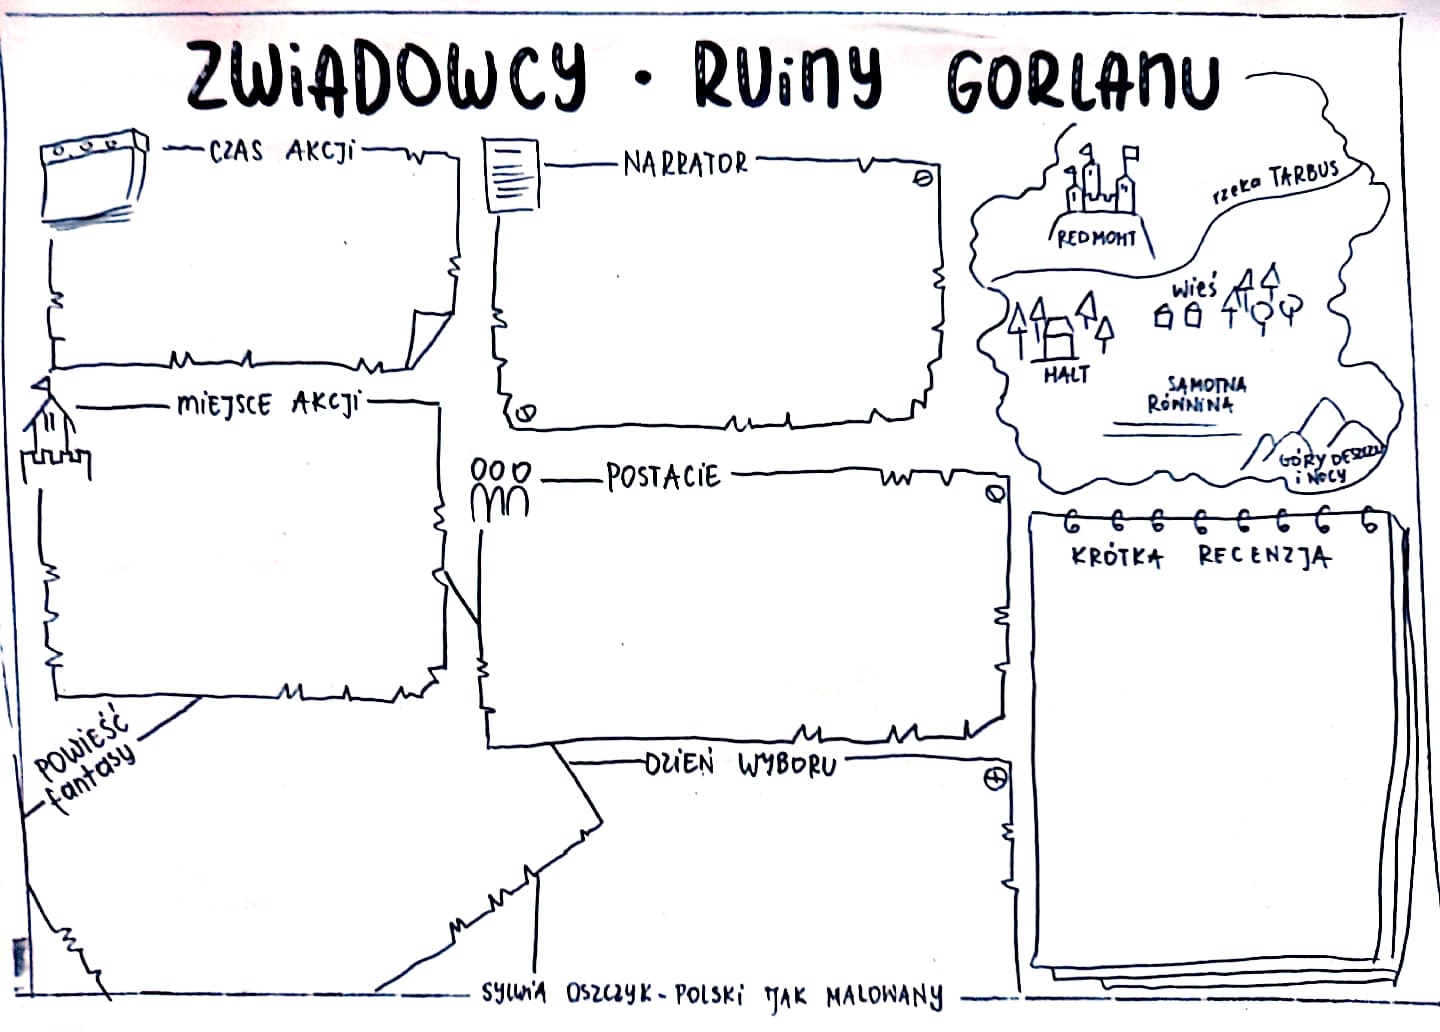 ZWiADOWCY • RUiNY GORLANU
CZAS AKCJi
NARRATOR
rzeka TARBUS
REDMONT
wieś
HALT
SAMOTNA
RÓWNINA
GÓRY DESZCZU
i NOCY
MiEJSCE AKCJi
POSTACiE
KRÓTKA RECENZJA
POWiEŚĆ
fantasy
DZiEŃ WYBORU
SYLWiA OSZCZYK - POLSKi JAK MALOWANY